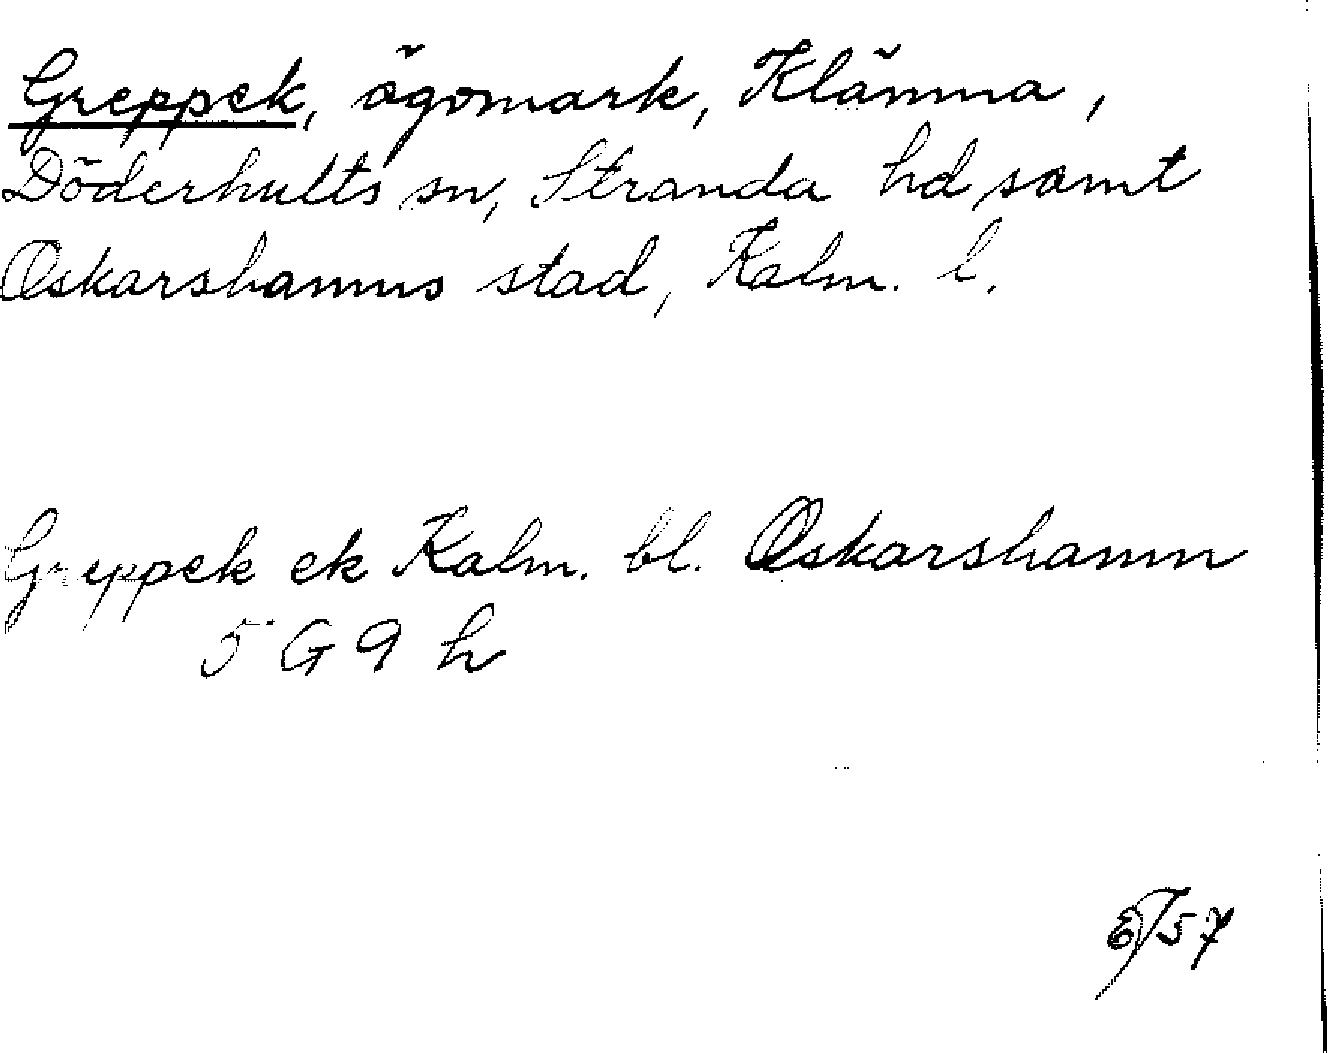 Greppek, ägomark, Klämna,
Döderhults sn, Stranda hd samt
Oskarshamns stad, Kalm. l.
Greppek ek Kalm. bl. Oskarshamn
5 G 9 h
57